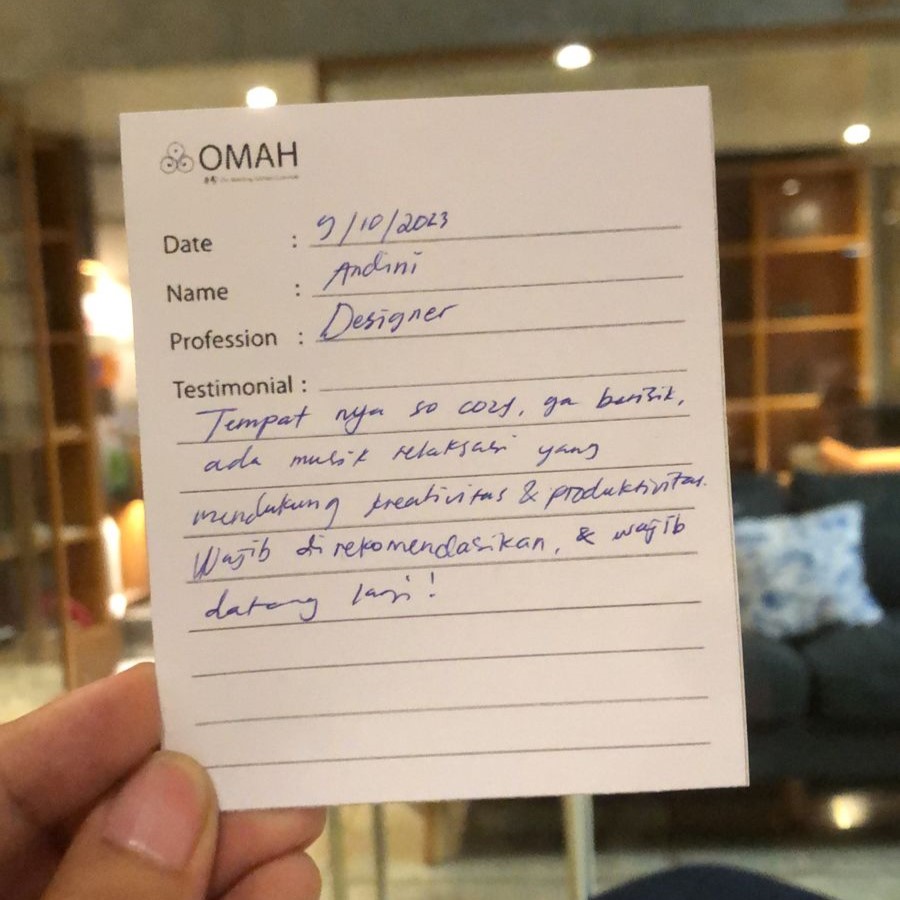 OMAH
Date : 9/10/2023
Name : Andini
Profession : Designer
Testimonial :
Tempat nya so cozy, ga berisik,
ada musik relaksasi yang
mendukung kreativitas & produktivitas.
Wajib direkomendasikan, & wajib
datang lagi!